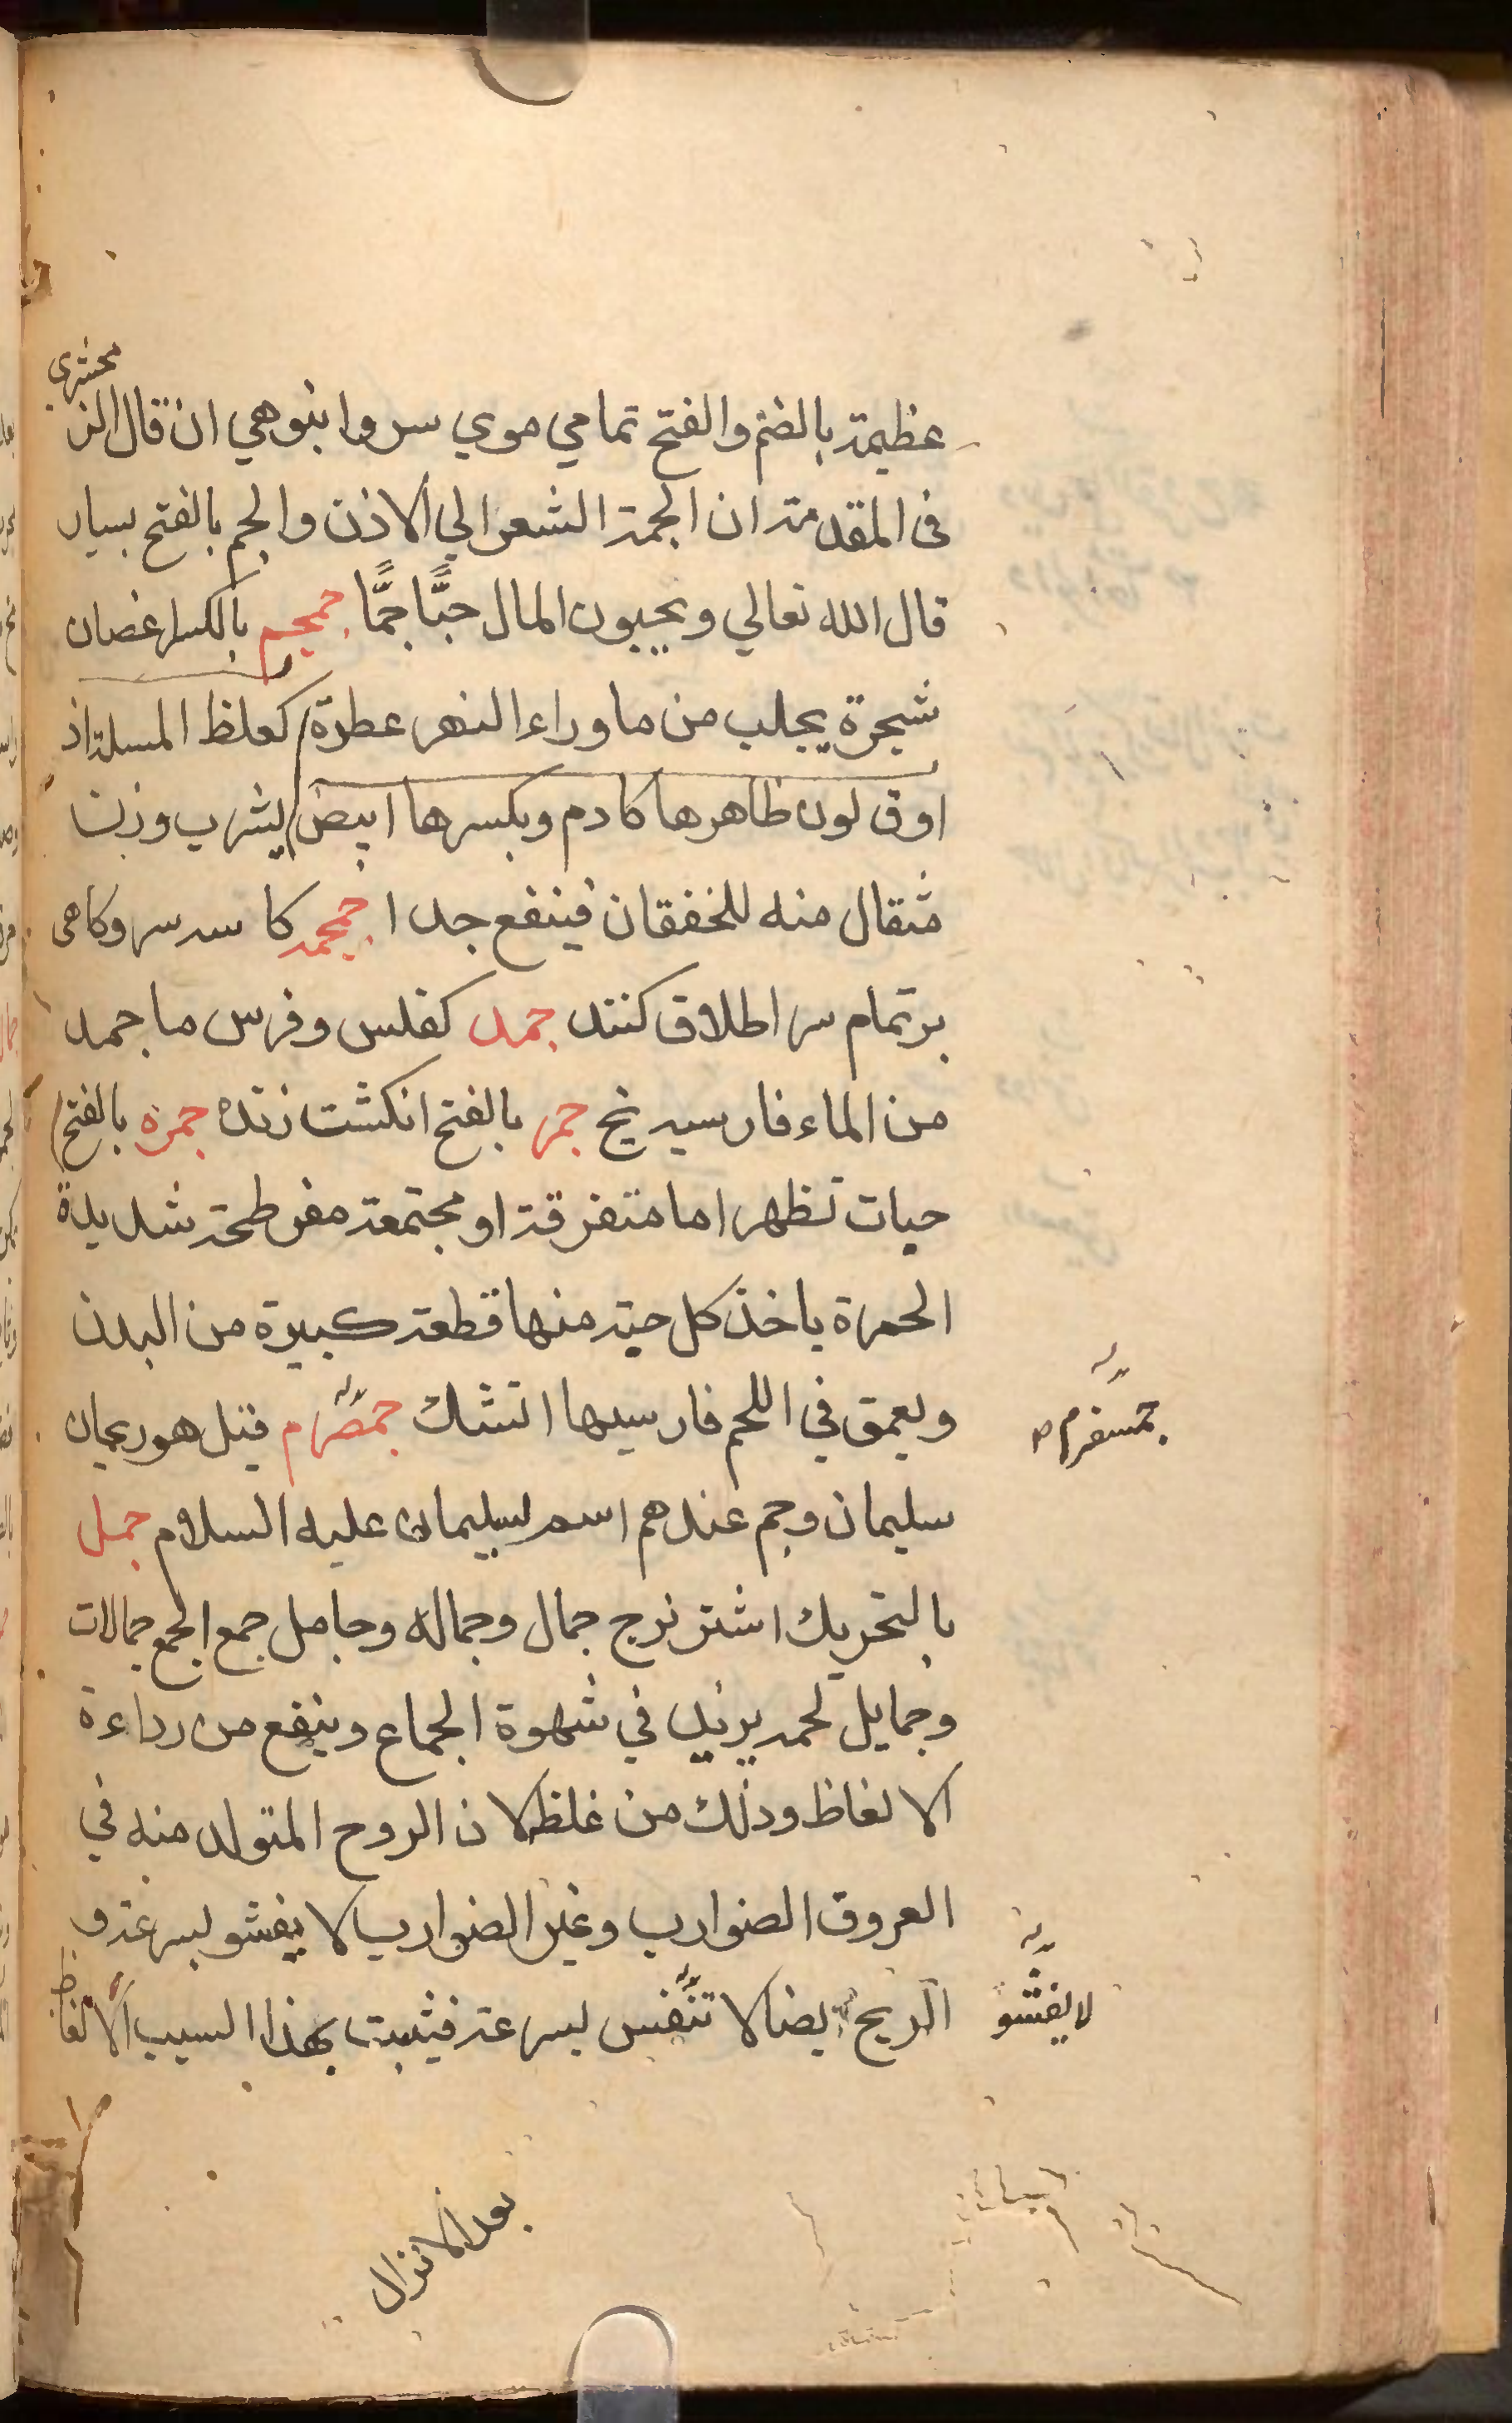 محشري
عظيمة بالضم والفتح تمامي موي سر وانبوهي ان قال الز
في المقدمة ان الجمة الشعر الي الاذن والجم بالفتح بسيار
قال الله تعالي ويحبون المال حبًّا جمًّا جمجم بالكسر اغصان
شجرة يجلب من ما وراء النهر عطرة كغلظ المسلة اذ
اوق لون ظاهرها كادم وبكسرها ابيض يشرب وزن
مثقال منه للخفقان فينفع جدا جمجمه كا سه سر وكاهى
بر تمام سر اطلاق كنند جمد كفلس وفرس ما جمد
من الماء فارسيه يخ جمر بالفتح انكشت زنده جمره بالفتح
حبات تظهر اما متفرقة او مجتمعة مفرطحة شديدة
الحمرة ياخذ كل حبة منها قطعة كبيرة من البدن
ويعمق في اللحم فارسيها اتشك جمصرم قيل هو ريحان
جمسفرم
سليمان وجم عندهم اسم لسليمان عليه السلام جمل
بالتحريك اشتر نر ج جمال وجماله وجامل جمع الجمع جمالات
وجمايل لحمه يزيد في شهوة الجماع وينفع من رداءة
الانعاظ وذلك من غلظ لان الروح المتولد منه في
العروق الضوارب وغير الضوارب لا يفشو بسرعة و
الريح ايضا لا تنفس بسرعة فيثبت بهذا السبب الانعاظ
لا يفشو
بعد الانزال